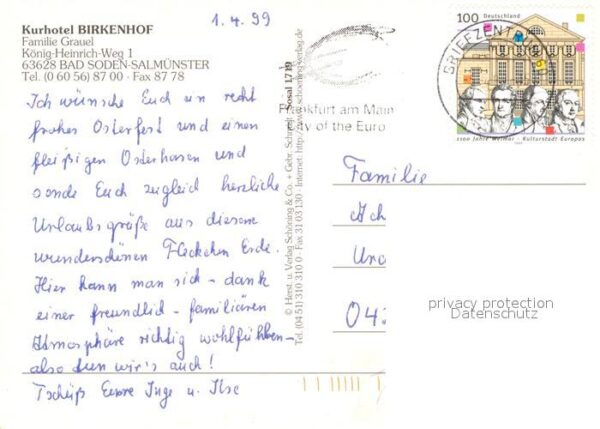 1.4.99
Kurhotel BIRKENHOF
Familie Grauel
König-Heinrich-Weg 1
63628 BAD SODEN-SALMÜNSTER
Tel. (0 60 56) 87 00 · Fax 87 78
Ich wünsche Euch ein recht
frohes Osterfest und einen
fleißigen Osterhasen und
sende Euch zugleich herzliche
Urlaubsgrüße aus diesem
wunderschönen Fleckchen Erde.
Hier kann man sich – dank
einer freundlich-familiären
Atmosphäre richtig wohlfühlen –
also tun wir's auch!
Tschüß Eure Inge u. Ilse
© Herst. u. Verlag Schöning & Co. + Gebr. Schmidt
Tel. (04 51) 310 310 0 · Fax 31 03 130 · Internet: http://www.schoening-verlag.de
BRIEFZENTRUM
Frankfurt am Main
City of the Euro
100 Deutschland
1100 Jahre Weimar – Kulturstadt Europas
Familie
Ach
042
privacy protection
Datenschutz